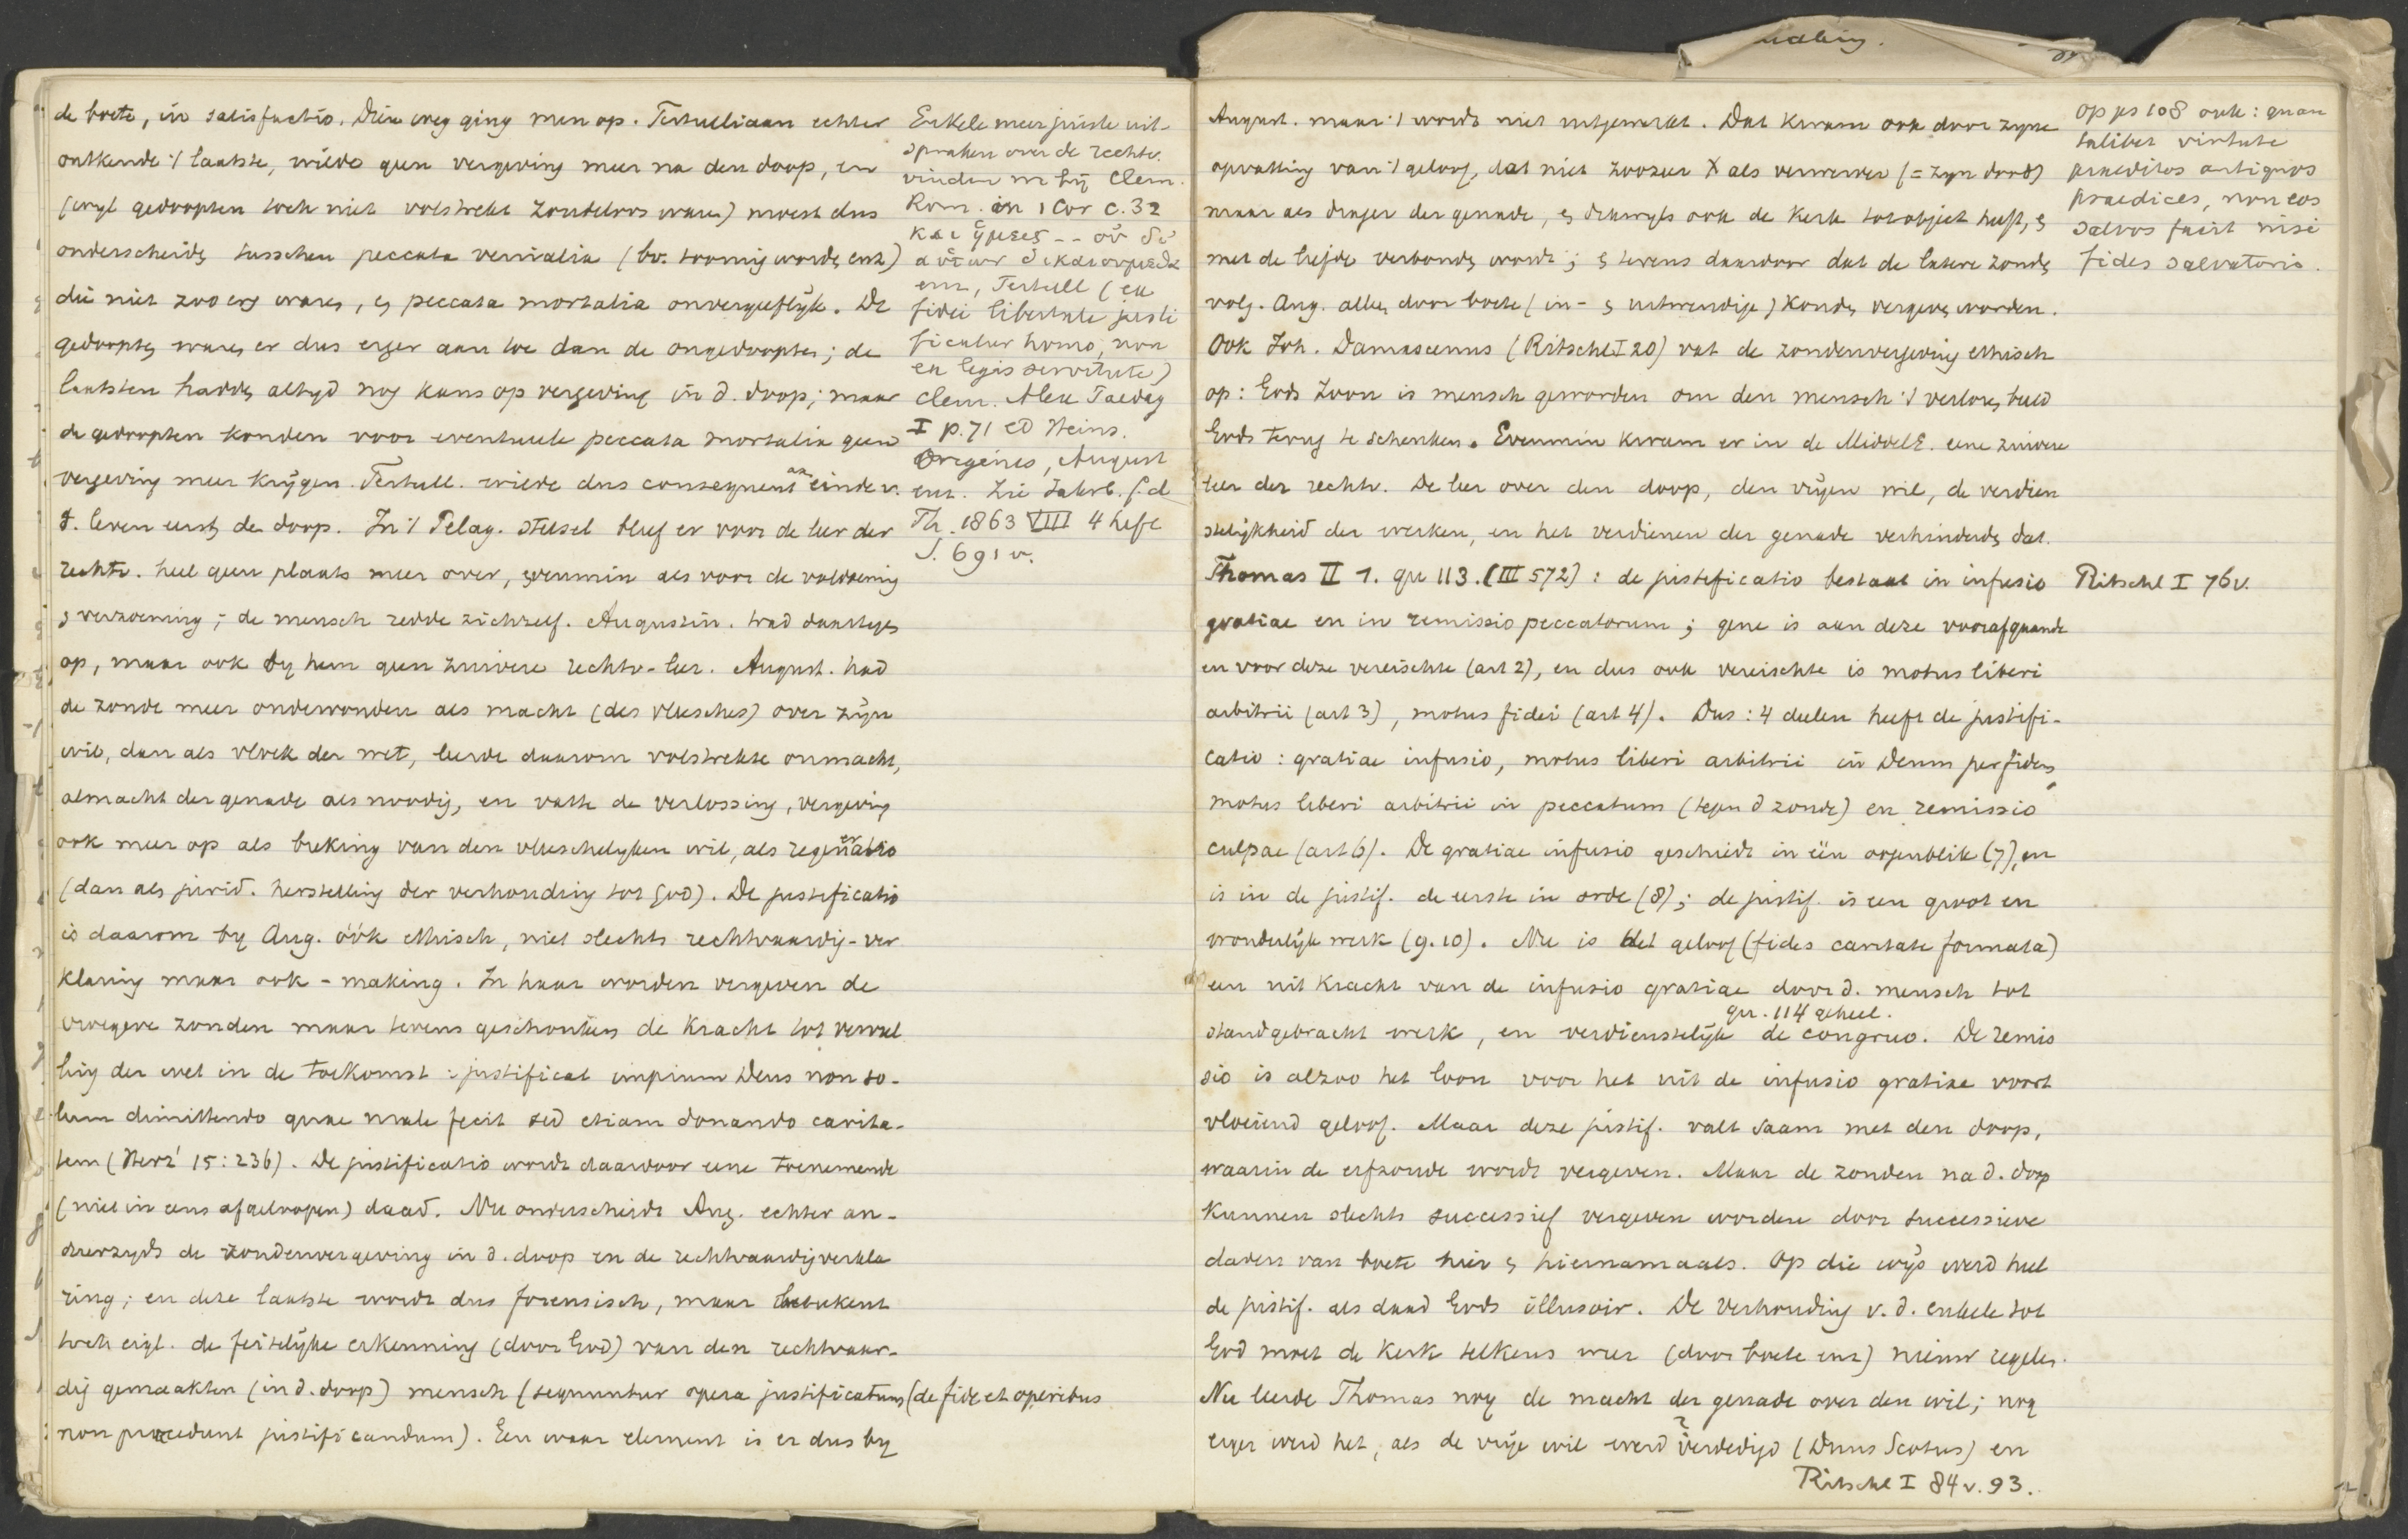 de boete, in satisfactio. Dien weg ging men op. Tertulliaan echter
ontkende 't laatste, wilde geen vergeving meer na den doop, en
(wyl gedoopten toch niet volstrekt zondeloos waren) moest dus
onderscheidn tusschen peccata venialia (bv. toornig wordn enz)
die niet zoo erg waren, en peccata mortalia onvergeeflyk. De
gedooptn waren er dus erger aan toe dan de ongedooptn; de
laatsten haddn altyd nog kans op vergeving in d. doop; maar
de gedoopten konden voor eventueele peccata mortalia geen
vergeving meer krygen. Tertull. wilde dus consequent aan einde v.
't. leven eerst den doop. In 't Pelag. stelsel bleef er voor de leer der
rechtv. heel geen plaats meer over, evenmin als voor de voldoening
en verzoening; de mensch redde zichzelf. Augustin. trad daartegen
op, maar ook by hem geen zuivere rechtv-leer. August. had
de zonde meer ondervonden als macht (des vleesches) over zyn
wil, dan als vloek der wet, leerde daarom volstrekte onmacht,
almacht der genade als noodig, en vatte de verlossing, vergeving
ook meer op als breking van den vleeschelyken wil, als regeneratio
(dan als jurid. herstelling der verhouding tot God). De justificatio
is daarom by Aug. óók ethisch, niet slechts rechtvaardig-ver
klaring maar ook - making. In haar worden vergeven de
vroegere zonden maar tevens geschonken de kracht tot vervul
ling der wet in de toekomst: justificat impium Deus non so-
lum dimittendo quae male fecit sed etiam donando carita-
tem (Herz² 15:236). De justificatio wordt daardoor eene toenemende
(niet in eens afgeloopen) daad. Nu onderscheidt Aug. echter an-
derzyds de zondenvergeving in d. doop en de rechtvaardigverkla
ring; en deze laatste wordt dus forensisch, maar beteekent
toch eigl. de feitelyke erkenning (door God) van den rechtvaar-
dig gemaakten (in d. doop) mensch (sequuntur opera justificatum (de fide et operibus
non praecedunt justificandum). Een waar element is er dus by
Enkele meer juiste uit-
spraken over de rechtv.
vinden we by Clem.
Rom. in 1 Cor c. 32
και ημεις -- ου δι
αυτων δικαιουμεθα
enz, Tertull (ex
fidei libertate justi
ficatur homo, non
ex legis servitute)
Clem. Alex Paedag
I p. 71 ed Heins.
Origenes, August
enz. Zie Jahrb. f. d
Th. 1863 VIII 4 heft
S. 691 v.
August. maar 't wordt niet uitgewerkt. Dat kwam ook door zyne
opvatting van 't geloof, dat niet zoozeer X als verwerver (= zyn dood)
maar als drager der genade, en dikwyls ook de Kerk tot object heeft, en
met de liefde verbonden wordt; en tevens daardoor dat de latere zonden
volg. Aug. alleen door boete (in- en uitwendige) konden vergeven worden.
Ook Joh. Damascenus (Ritschl I 20) vat de zondenvergeving ethisch
op: Gods Zoon is mensch geworden om den mensch 't verloren beeld
Gods terug te schenken. Evenmin kwam er in de MiddelE. eene zuivere
leer der rechtv. De leer over den doop, den vryen wil, de verdien
stelykheid der werken, en het verdienen der genade verhinderden dat.
Thomas II 1. qu 113. (III 572): de justificatio bestaat in infusio
gratiae en in remissio peccatorum; gene is aan deze voorafgaande
en voor deze vereischte (art 2), en dus ook vereischte is motus liberi
arbitrii (art 3), motus fidei (art 4). Dus: 4 deelen heeft de justifi-
catio: gratiae infusio, motus liberi arbitrii in Deum per fidem,
motus liberi arbitrii in peccatum (tegen d zonde) en remissio
culpae (art 6). De gratiae infusio geschiedt in één oogenblik (7), en
is in de justif. de eerste in orde (8); de justif. is een groot en
wonderlyk werk (9. 10). Nu is het geloof (fides caritate formata)
een uit kracht van de infusio gratiae door d. mensch tot
qu. 114 geheel.
standgebracht werk, en verdienstelyk de congruo. De remis
sio is alzoo het loon voor het uit de infusio gratiae voort
vloeiend geloof. Maar deze justif. valt saam met den doop,
waarin de erfzonde wordt vergeven. Maar de zonden na d. doop
kunnen slechts successief vergeven worden door successieve
daden van boete hier en hiernamaals. Op die wys werd heel
de justif. als daad Gods illusoir. De verhouding v. d. enkele tot
God moet de Kerk telkens weer (door boete enz) nieuw regelen.
Nu leerde Thomas nog de macht der genade over den wil; nog
erger werd het, als de vrye wil werd verdedigd (Duns Scotus) en
Ritschl I 84 v. 93.
op ps 108 ook: quan
talibet virtute
praeditos antiquos
praedices, non eos
salvos fecit nisi
fides salvatoris.
Ritschl I 76 v.